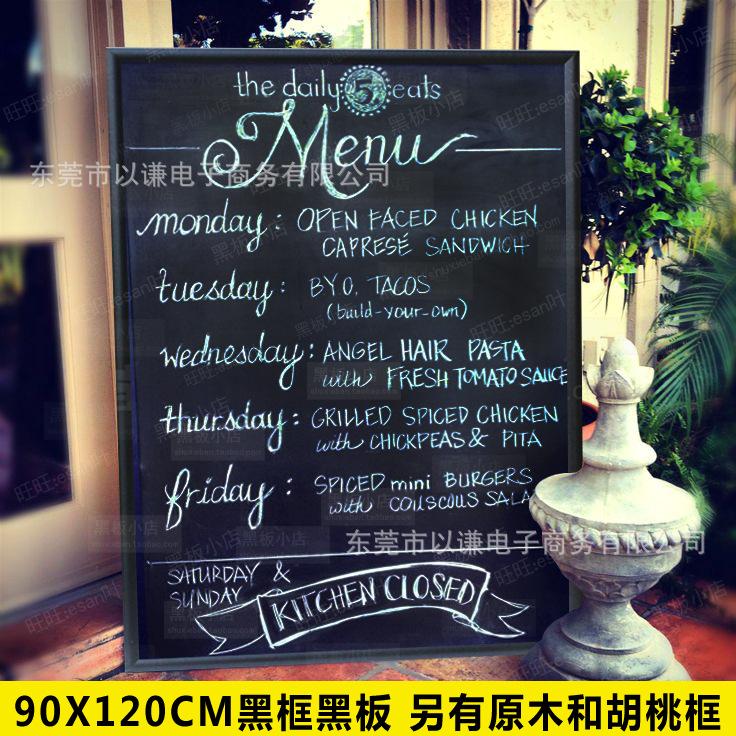 the daily 5 eats
Menu
东莞市以谦电子商务有限公司
monday: OPEN FACED CHICKEN
CAPRESE SANDWICH
tuesday: B.Y.O. TACOS
(build-your-own)
wednesday: ANGEL HAIR PASTA
with FRESH TOMATO SAUCE
thursday: GRILLED SPICED CHICKEN
with CHICKPEAS & PITA
friday: SPICED mini BURGERS
with COUSCOUS SALA
东莞市以谦电子商务有限公司
SATURDAY &
SUNDAY
KITCHEN CLOSED
90X120CM黑框黑板 另有原木和胡桃框